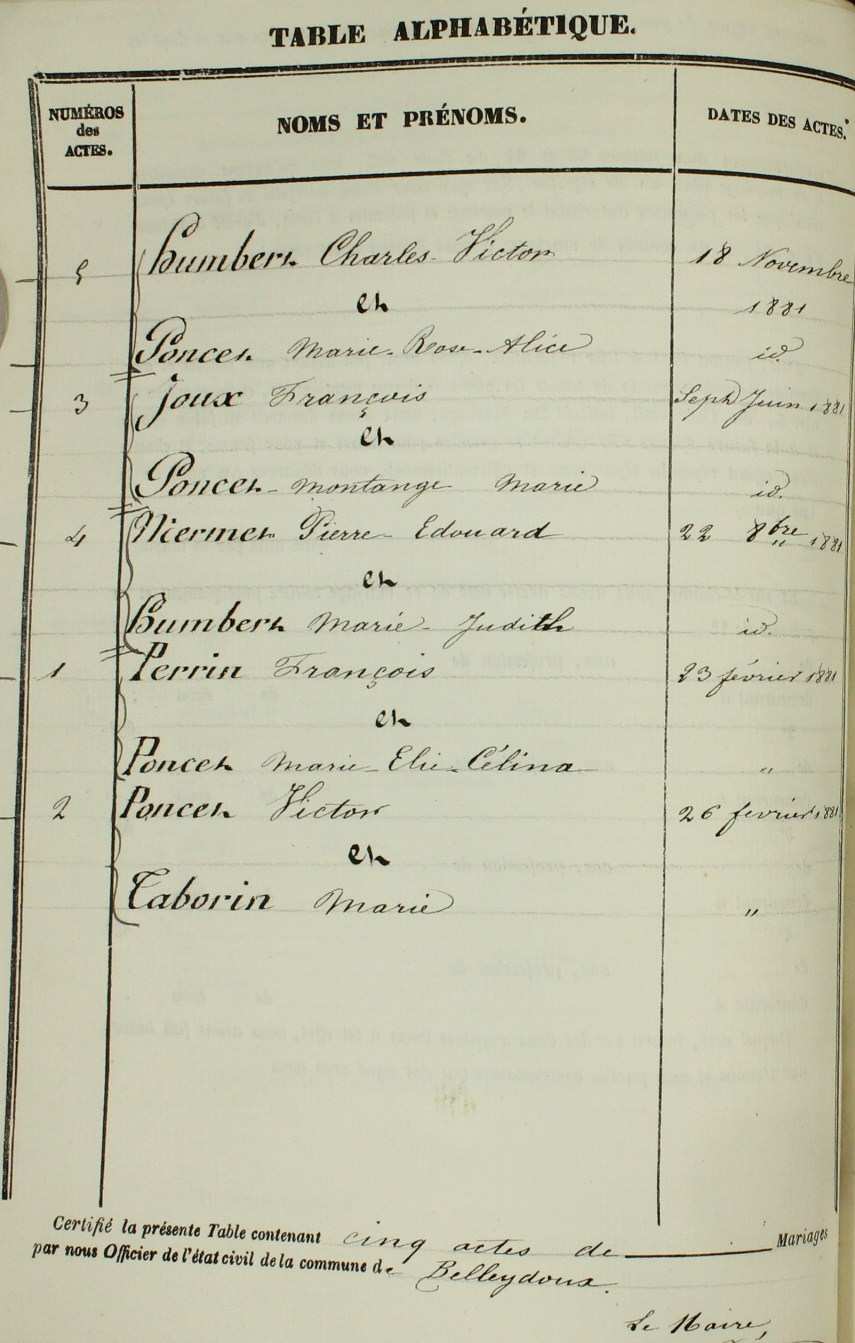 TABLE ALPHABÉTIQUE.
NUMÉROS des ACTES. NOMS ET PRÉNOMS. DATES DES ACTES.
5 Humbert Charles-Victor 18 Novembre
et 1881
Poncet Marie-Rose-Alice id.
3 Joux François Sept Juin 1881
et
Poncet-Montange Marie id.
4 Mermet Pierre-Edouard 22 8bre 1881
et
Humbert Marie-Judith id.
1 Perrin François 23 février 1881
et
Poncet Marie-Elie-Célina "
2 Poncet Victor 26 fevrier 1881
et
Taborin Marie "
Certifié la présente Table contenant cinq actes de Mariages
par nous Officier de l'état civil de la commune de Belleydoux.
Le Maire,